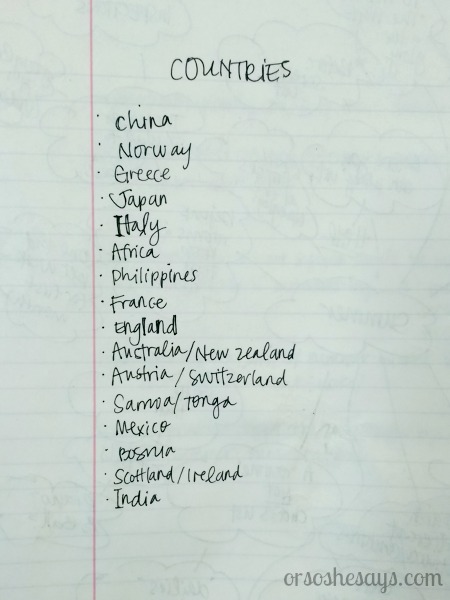 COUNTRIES
· China
· Norway
· Greece
· Japan
· Italy
· Africa
· Philippines
· France
· England
· Australia/New Zealand
· Austria/Switzerland
· Samoa/Tonga
· Mexico
· Bosnia
· Scottland/Ireland
· India
orsoshesays.com